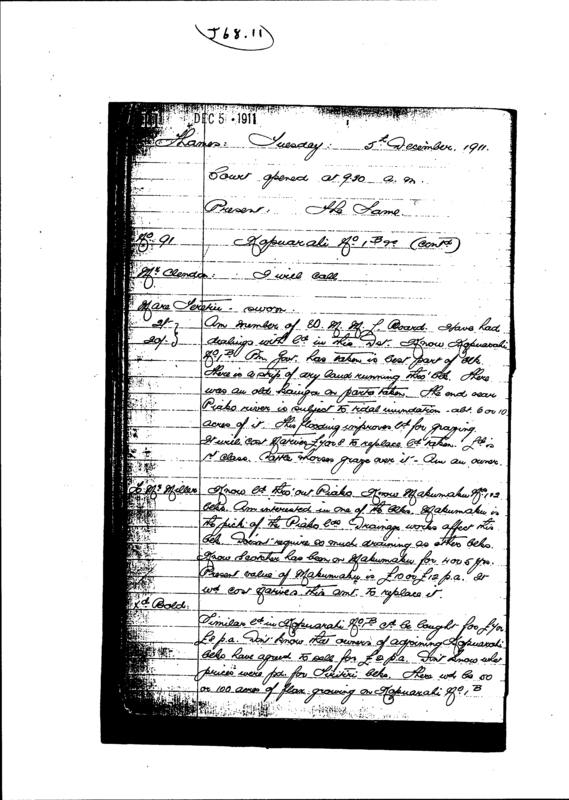 J68.11
DEC 5 - 1911
Thames: Tuesday: 5th December. 1911.
Court opened at 9.30 a.m.
Present. The Same
No. 91 Kopuarahi No 1 B (contd)
Mr Clendon: I will call
Mare Teretiu - sworn
Am member of W. M. M. L. Board. Have had
dealings with ld in this Dst. Know Kopuarahi
No 1 B. Govt. has taken is best part of blk.
There is a strip of dry land running thro' blk. There
was an old kainga on parts taken. The end near
Piako river is subject to tidal inundation - abt. 6 or 10
acres of it. This flooding improves ld for grazing.
It will cost Maories £7 or 8 to replace ld taken. Ld is
1st class. Horses graze over it - Am an owner.
To Mr Miller Know ld thro'out Piako. Know Makumaku Nos 1 & 2
blks. Am interested in one of the blks. Makumaku is
the pick of the Piako lds. Drainage works affect this
blk. Doesn't require so much draining as other blks.
Know has been on Makumaku for 4 or 5 yrs.
Present value of Makumaku is £10 or £12 p.a. It
wd cost Maories this amt. to replace it.
Xd Bold.
Similar ld in Kopuarahi No 1 B cd be bought for £7 or
£8 p.a. Don't know that owners of adjoining Kopuarahi
blks have agreed to sell for £2 p.a. Don't know what
prices were pd. for blks. There wd be 50
or 100 acres of flax growing on Kopuarahi No 1 B